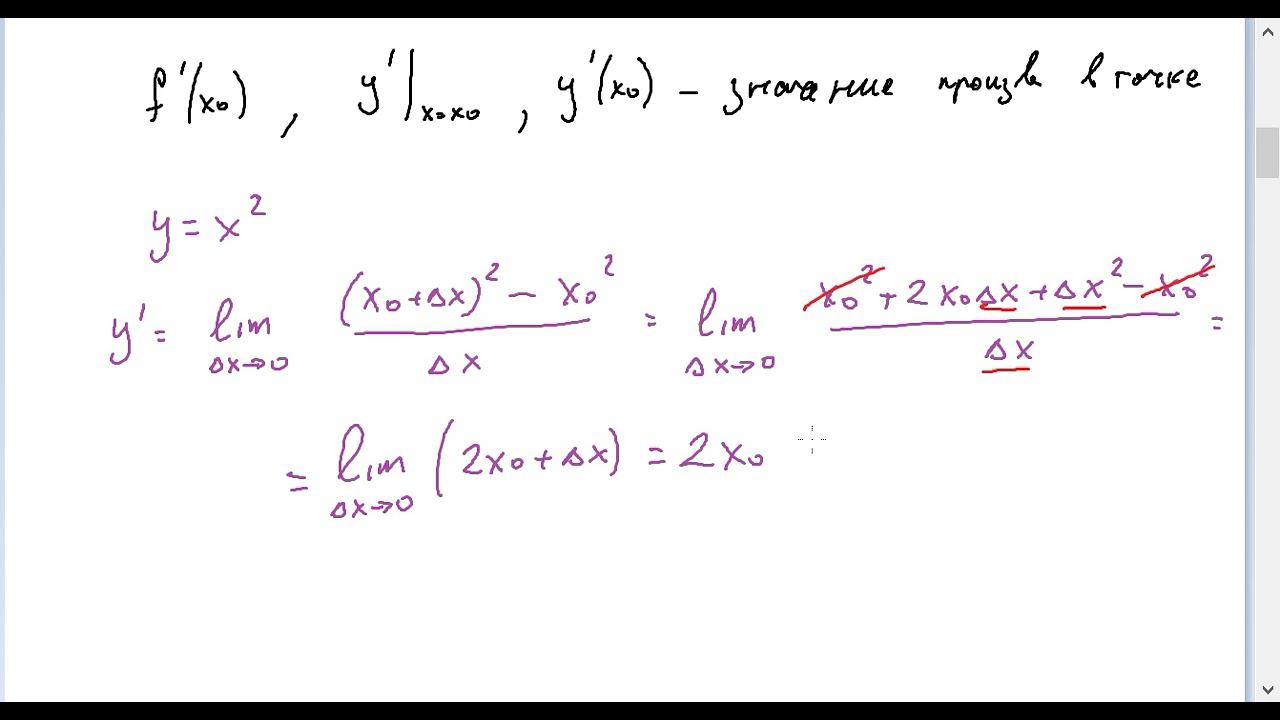 f'(x₀), y'|ₓ₌ₓ₀, y'(x₀) – значение произв в точке
y = x²
y' = lim Δx→0 ((x₀+Δx)² – x₀²)/Δx = lim Δx→0 (x₀² + 2x₀Δx + Δx² – x₀²)/Δx =
= lim Δx→0 (2x₀ + Δx) = 2x₀